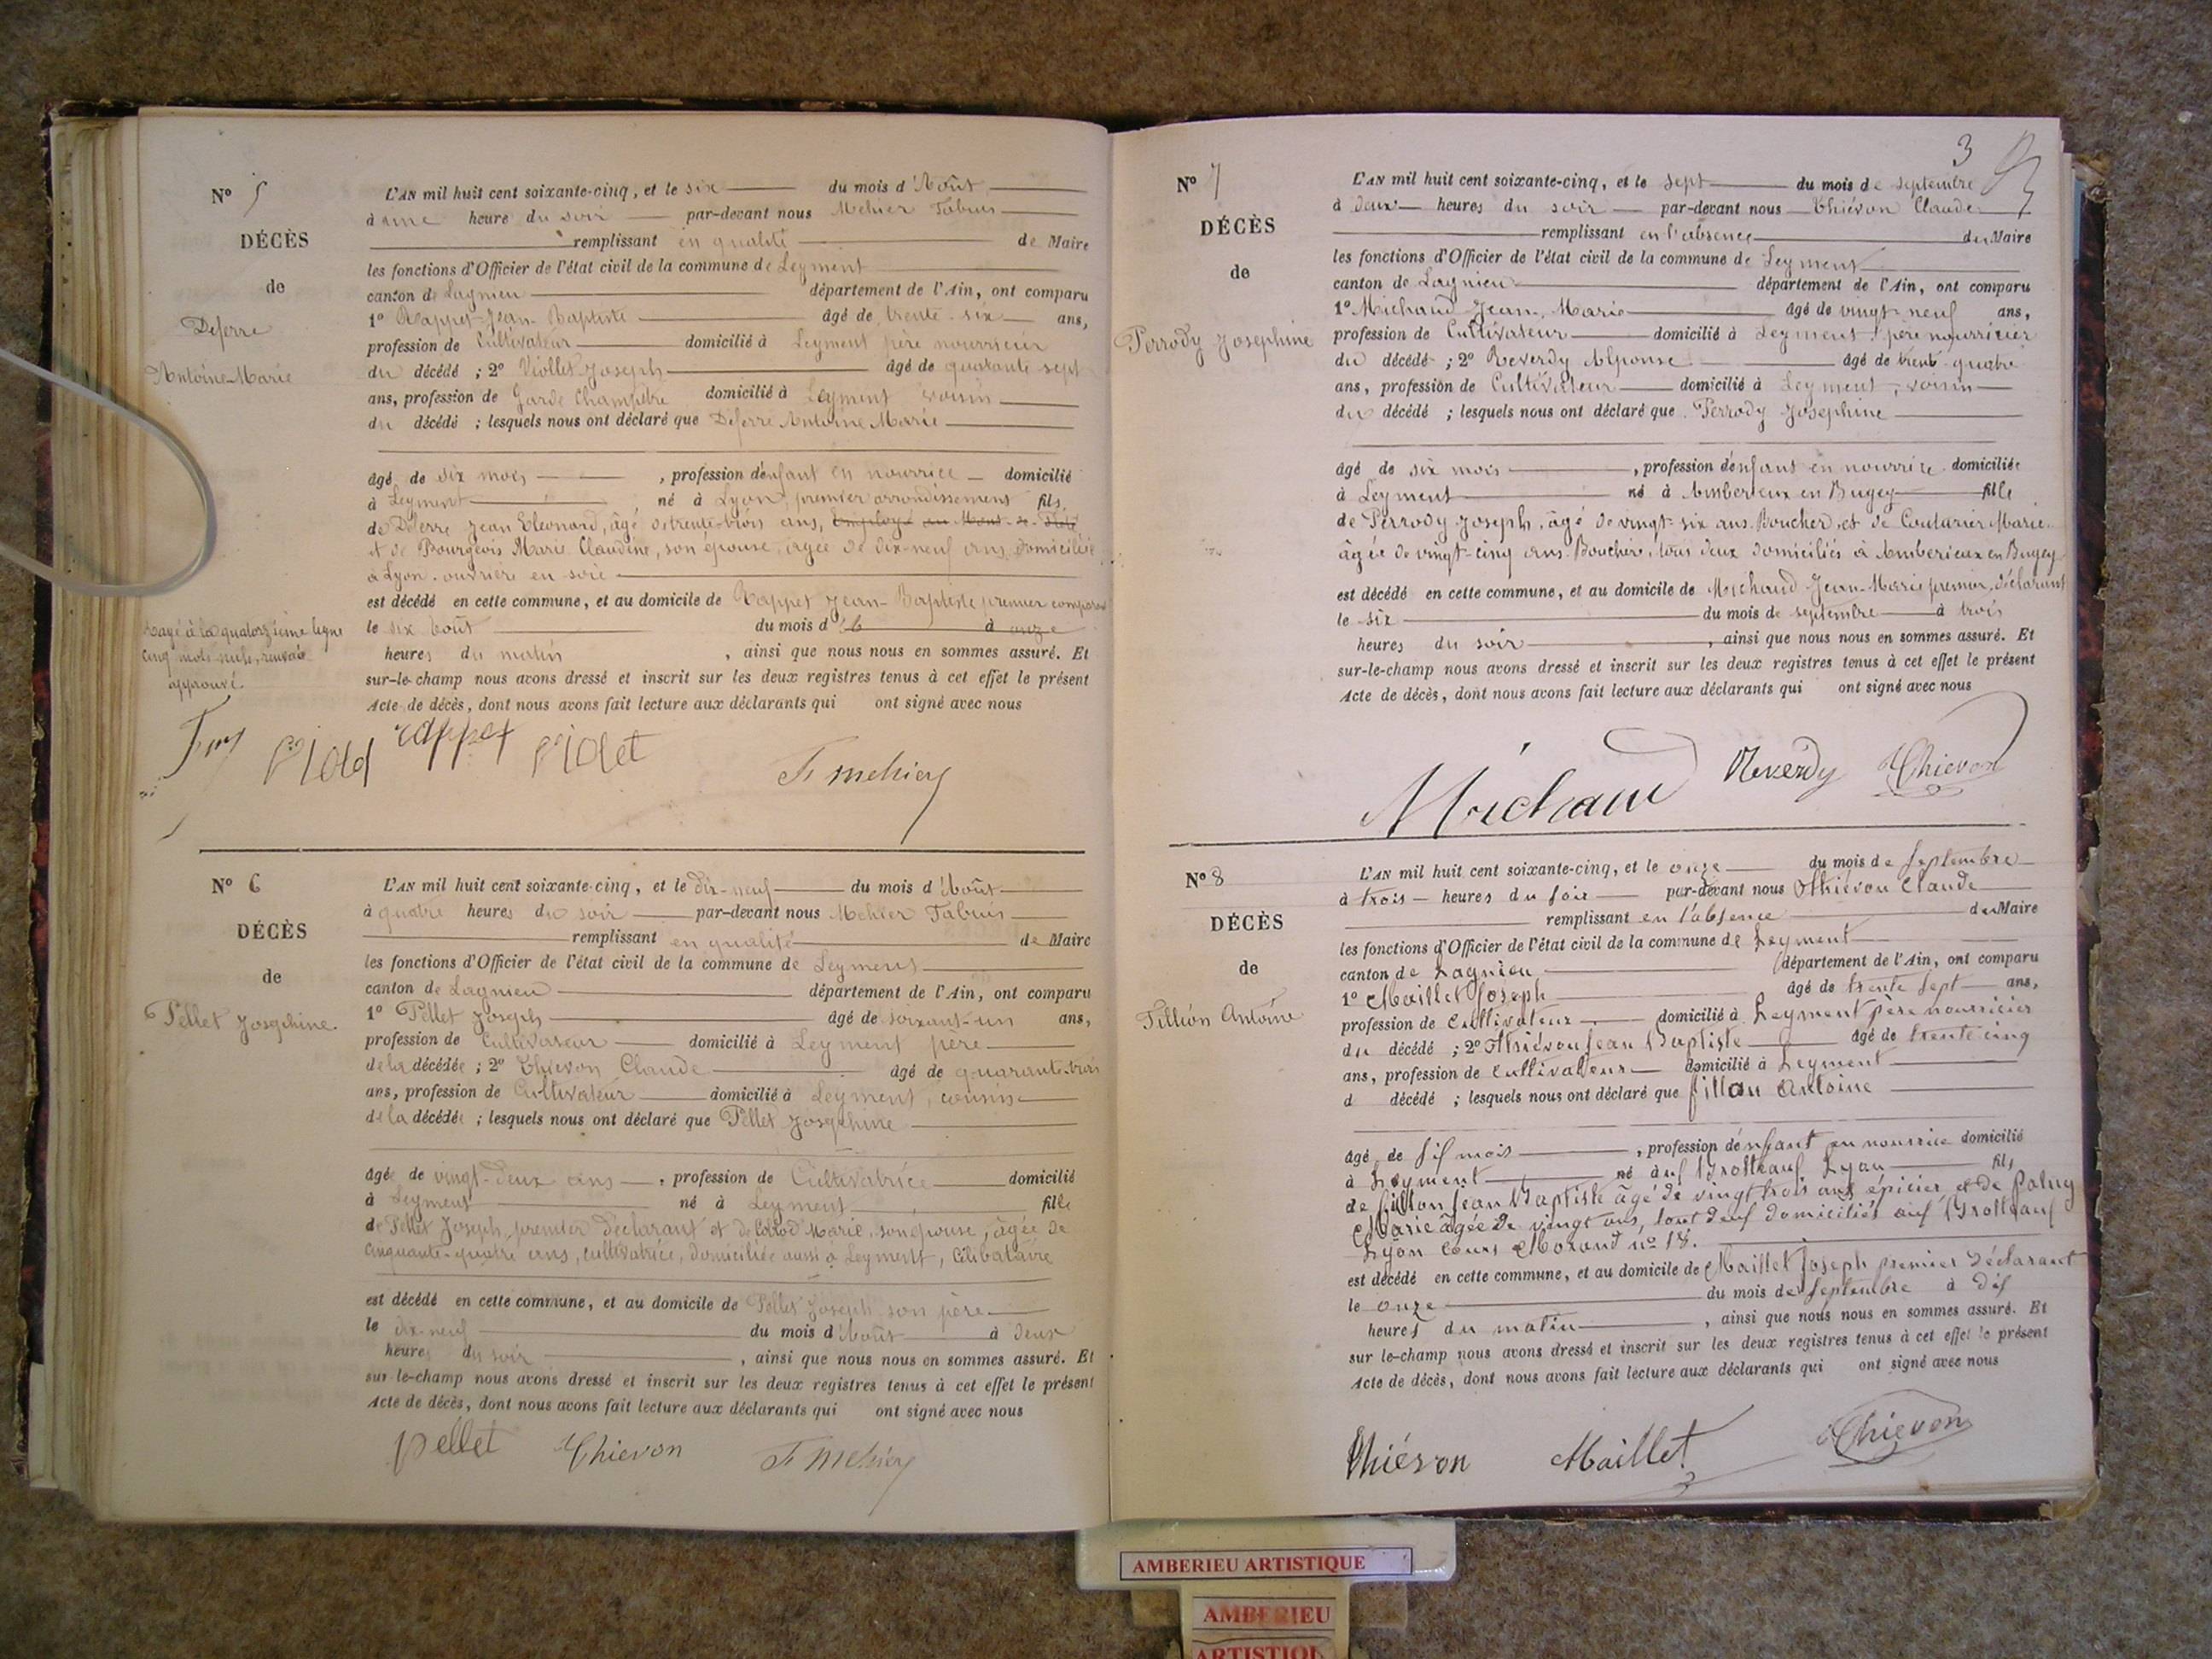 Nº 5
DÉCÈS
de
Deferre
Antoine Marie
L'AN mil huit cent soixante-cinq, et le six du mois d'Août
à une heure du soir par-devant nous Mehier Fabius
remplissant en qualité de Maire
les fonctions d'Officier de l'état civil de la commune de Leyment
canton de Lagnieu département de l'Ain, ont comparu
1º Rappet Jean-Baptiste âgé de trente-six ans,
profession de Cultivateur domicilié à Leyment père nourricier
du décédé ; 2º Viollet Joseph âgé de quarante sept
ans, profession de Garde Champêtre domicilié à Leyment voisin
du décédé ; lesquels nous ont déclaré que Deferre Antoine Marie
âgé de six mois , profession d'enfant en nourrice domicilié
à Leyment né à Lyon, premier arrondissement fils
de Deferre Jean Eléonard, âgé de trente-trois ans, Employé au Mont-de-Piété
et de Bourgeois Marie Claudine, son épouse, âgée de dix-neuf ans, domiciliée
à Lyon. ouvrière en soie
est décédé en cette commune, et au domicile de Rappet Jean-Baptiste premier comparant
le six Août du mois d' à onze
heures du matin , ainsi que nous nous en sommes assuré. Et
sur-le-champ nous avons dressé et inscrit sur les deux registres tenus à cet effet le présent
Acte de décès, dont nous avons fait lecture aux déclarants qui ont signé avec nous
Rayé à la quatorzième ligne
cinq mots nuls, renvoi
approuvé
F m viold rappet violet F mehier
Nº 6
DÉCÈS
de
Pellet Josephine.
L'AN mil huit cent soixante-cinq, et le dix-neuf du mois d'Août
à quatre heures du soir par-devant nous Mehier Fabius
remplissant en qualité de Maire
les fonctions d'Officier de l'état civil de la commune de Leyment
canton de Lagnieu département de l'Ain, ont comparu
1º Pellet Joseph âgé de soixant-un ans,
profession de Cultivateur domicilié à Leyment père
de la décédée ; 2º Thiévon Claude âgé de quarante-trois
ans, profession de Cultivateur domicilié à Leyment, cousin
de la décédée ; lesquels nous ont déclaré que Pellet Josephine
âgée de vingt-deux ans , profession de Cultivatrice domicilié
à Leyment né à Leyment fille
de Pellet Joseph, premier déclarant et de Marie, son épouse, âgée de
cinquante-quatre ans, cultivatrice, domiciliée aussi à Leyment, célibataire
est décédé en cette commune, et au domicile de Pellet Joseph son père
le dix-neuf du mois d'Août à deux
heures du soir , ainsi que nous nous en sommes assuré. Et
sur-le-champ nous avons dressé et inscrit sur les deux registres tenus à cet effet le présent
Acte de décès, dont nous avons fait lecture aux déclarants qui ont signé avec nous
pellet Thievon F mehier
3
Nº 7
DÉCÈS
de
Perrody Josephine
L'AN mil huit cent soixante-cinq, et le sept du mois de septembre
à deux heures du soir par-devant nous Thiévon Claude
remplissant en l'absence du Maire
les fonctions d'Officier de l'état civil de la commune de Leyment
canton de Lagnieu département de l'Ain, ont comparu
1º Michaud Jean-Marie âgé de vingt-neuf ans,
profession de Cultivateur domicilié à Leyment, père nourricier
du décédé ; 2º Reverdy Alponse âgé de trent-quatre
ans, profession de Cultivateur domicilié à Leyment, voisin
du décédé ; lesquels nous ont déclaré que Perrody Josephine
âgé de six mois , profession d'enfant en nourrice domiciliée
à Leyment né à Amberieux en Bugey fille
de Perrody Joseph, âgé de vingt-six ans. Boucher, et de Couturier Marie.
âgée de vingt-cinq ans. Bouchère, tous deux domiciliés à Amberieux en Bugey
est décédé en cette commune, et au domicile de Michaud Jean-Marie premier déclarant
le six du mois de septembre à trois
heures du soir , ainsi que nous nous en sommes assuré. Et
sur-le-champ nous avons dressé et inscrit sur les deux registres tenus à cet effet le présent
Acte de décès, dont nous avons fait lecture aux déclarants qui ont signé avec nous
Michaud Reverdy Thievon
Nº 8
DÉCÈS
de
Fillion Antoine
L'AN mil huit cent soixante-cinq, et le onze du mois de Septembre
à trois heures du soir par-devant nous Thiévon Claude
remplissant en l'absence du Maire
les fonctions d'Officier de l'état civil de la commune de Leyment
canton de Lagnieu département de l'Ain, ont comparu
1º Maillet Joseph âgé de trente sept ans,
profession de Cultivateur domicilié à Leyment père nourricier
du décédé ; 2º Thiévon Jean Baptiste âgé de trente cinq
ans, profession de Cultivateur domicilié à Leyment
d décédé ; lesquels nous ont déclaré que fillon Antoine
âgé de six mois , profession d'enfant en nourrice domicilié
à Leyment né aux Brotteaux Lyon fils
de fillon Jean Baptiste âgé de vingt trois ans épicier et de
Marie âgée de vingt ans, tout deux domiciliés aux Brotteaux
Lyon Cours Morand nº 18.
est décédé en cette commune, et au domicile de Maillet Joseph premier déclarant
le onze du mois de Septembre à dix
heures du matin , ainsi que nous nous en sommes assuré. Et
sur le-champ nous avons dressé et inscrit sur les deux registres tenus à cet effet le présent
Acte de décès, dont nous avons fait lecture aux déclarants qui ont signé avec nous
Thiévon Maillet Thievon
AMBERIEU ARTISTIQUE
AMBERIEU
ARTISTIQU